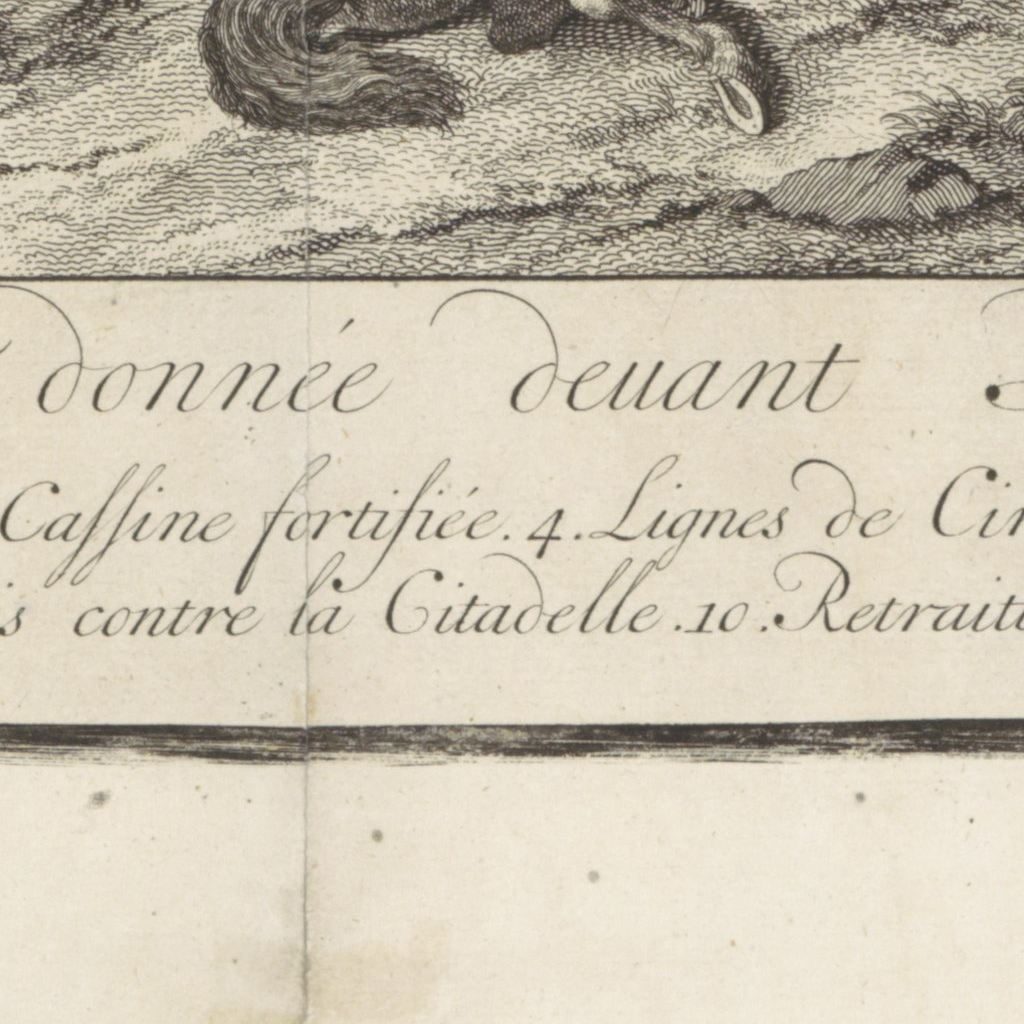 donnée deuant
Cassine fortifiée. 4. Lignes de Cir
is contre la Citadelle. 10. Retraite